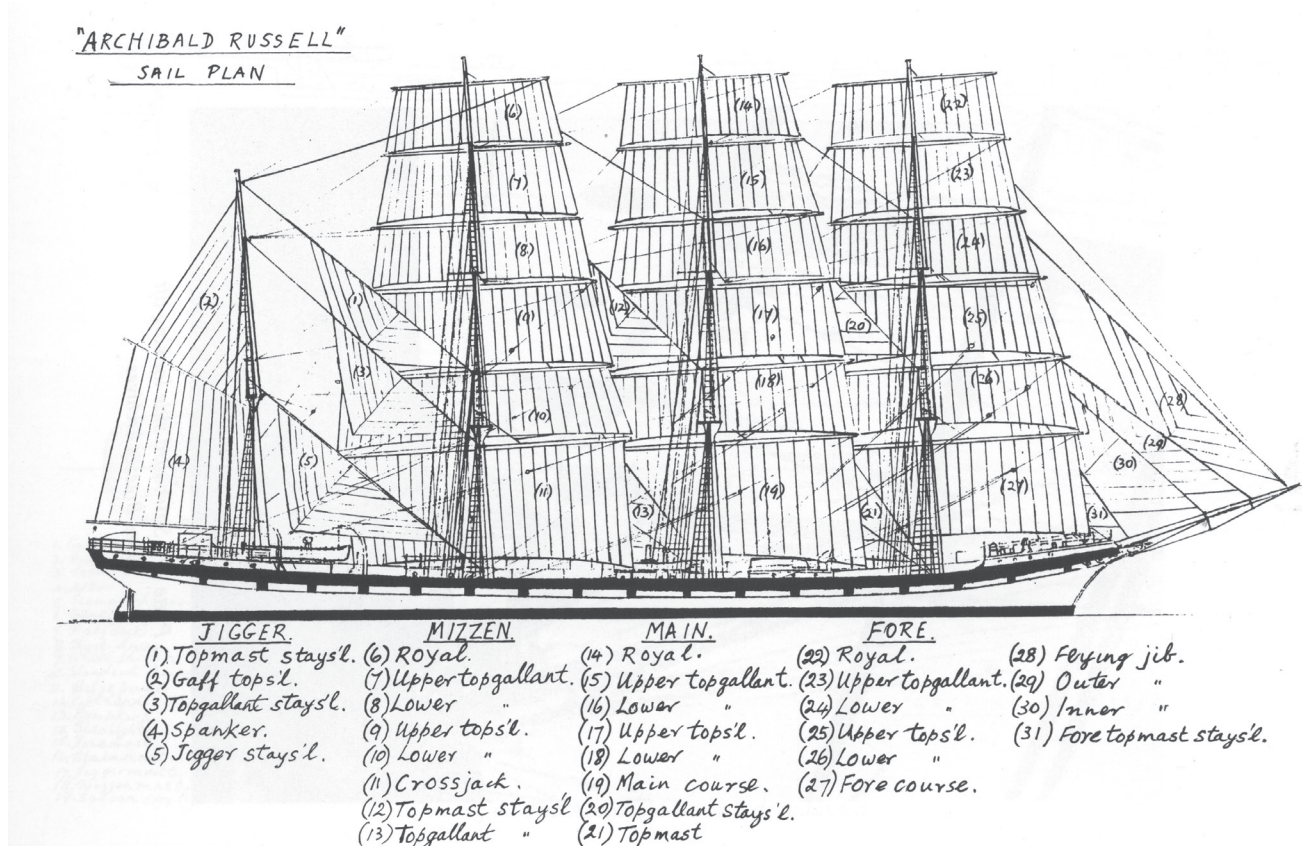 "ARCHIBALD RUSSELL"
SAIL PLAN
(6)
(14)
(22)
(7)
(15)
(23)
(8)
(16)
(24)
(2)
(1)
(9)
(12)
(17)
(20)
(25)
(3)
(18)
(26)
(28)
(10)
(29)
(4)
(5)
(11)
(19)
(27)
(30)
(13)
(21)
(31)
JIGGER.
(1) Topmast stays'l.
(2) Gaff tops'l.
(3) Topgallant stays'l.
(4) Spanker.
(5) Jigger stays'l.
MIZZEN.
(6) Royal.
(7) Upper topgallant.
(8) Lower "
(9) Upper tops'l.
(10) Lower "
(11) Crossjack.
(12) Topmast stays'l
(13) Topgallant "
MAIN.
(14) Royal.
(15) Upper topgallant.
(16) Lower "
(17) Upper tops'l.
(18) Lower "
(19) Main course.
(20) Topgallant stays'l.
(21) Topmast
FORE.
(22) Royal.
(23) Upper topgallant.
(24) Lower "
(25) Upper tops'l.
(26) Lower "
(27) Fore course.
(28) Flying jib.
(29) Outer "
(30) Inner "
(31) Fore topmast stays'l.